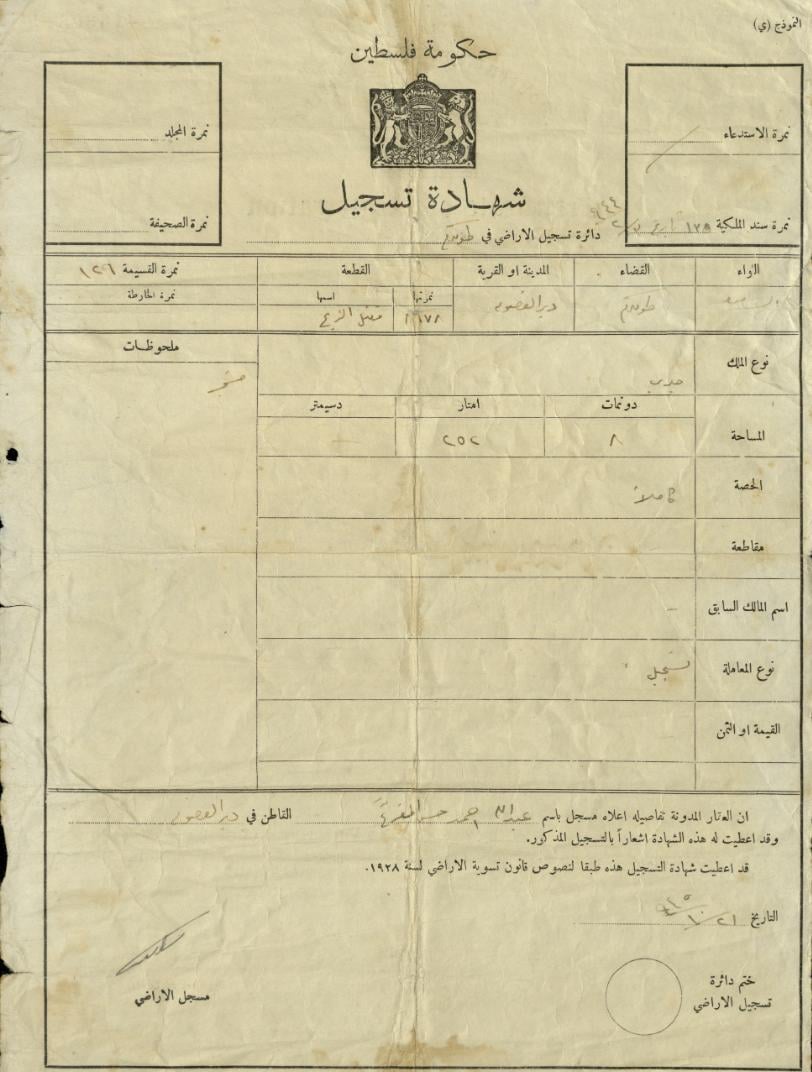 النموذج (ي)
حكومة فلسطين
نمرة الاستدعاء
نمرة المجلد
شهادة تسجيل
نمرة سند الملكية
نمرة الصحيفة
دائرة تسجيل الاراضي في طولكرم
الواء القضاء المدينة او القرية القطعة نمرة القسيمة ١٢٦
طولكرم دير الغصون نمرتها اسمها نمرة الخارطة
نوع الملك
ملحوظات
دونمات امتار دسيمتر
المساحة ٨ ٢٥٢
الحصة كاملا
مقاطعة
اسم المالك السابق -
نوع المعاملة تسجيل
القيمة او الثمن
ان العقار المدونة تفاصيله اعلاه مسجل باسم عبدالله احمد حسن القاطن في دير الغصون
وقد اعطيت له هذه الشهادة اشعاراً بالتسجيل المذكور.
قد اعطيت شهادة التسجيل هذه طبقا لنصوص قانون تسوية الاراضي لسنة ١٩٢٨.
التاريخ
ختم دائرة
تسجيل الاراضي
مسجل الاراضي